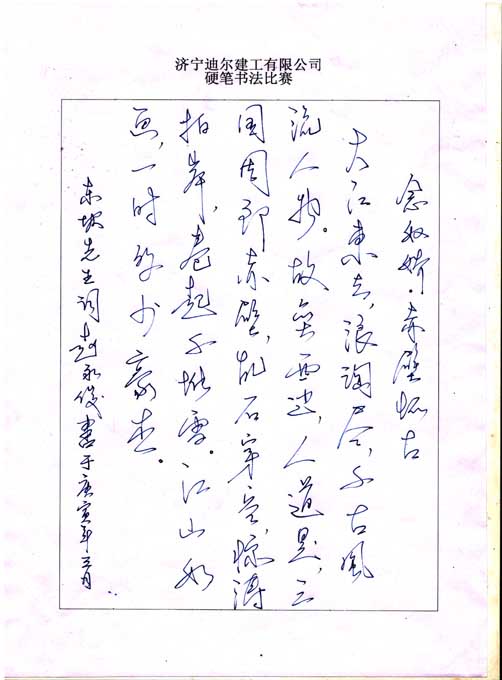 济宁迪尔建工有限公司
硬笔书法比赛
念奴娇·赤壁怀古
大江东去,浪淘尽,千古风
流人物。故垒西边,人道是,三
国周郎赤壁,乱石穿空,惊涛
拍岸,卷起千堆雪。江山如
画,一时多少豪杰。
东坡先生词赵永俊书于庚寅年三月